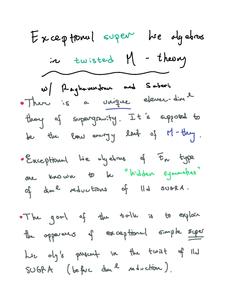 Exceptional super Lie algebras
in twisted M-theory
w/ Raghavendran and Saberi
• There is a unique eleven-dim'l
theory of supergravity. It's supposed to
be the low energy limit of M-thy.
• Exceptional Lie algebras of En type
are known to be "hidden symmetries"
of dim'l reductions of 11d SUGRA.
• The goal of the talk is to explain
the appearance of exceptional simple super
Lie alg's present in the twist of 11d
SUGRA (before dim'l reduction).